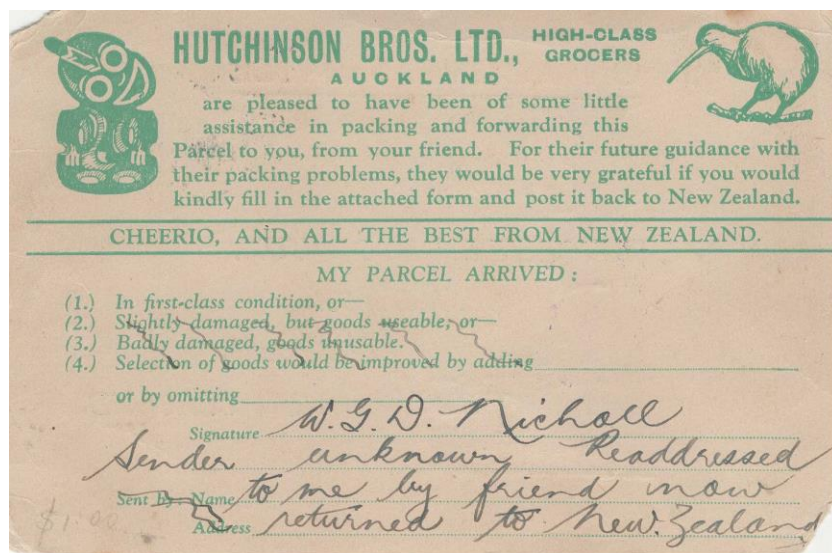 HUTCHINSON BROS. LTD., HIGH-CLASS GROCERS
AUCKLAND
are pleased to have been of some little
assistance in packing and forwarding this
Parcel to you, from your friend. For their future guidance with
their packing problems, they would be very grateful if you would
kindly fill in the attached form and post it back to New Zealand.
CHEERIO, AND ALL THE BEST FROM NEW ZEALAND.
MY PARCEL ARRIVED:
(1.) In first-class condition, or—
(2.) Slightly damaged, but goods useable, or—
(3.) Badly damaged, goods unusable.
(4.) Selection of goods would be improved by adding
or by omitting
Signature W.G.D. Nicholl
Sender unknown Readdressed
Sent By: Name to me by friend now
Address returned to New. Zealand
$1.00